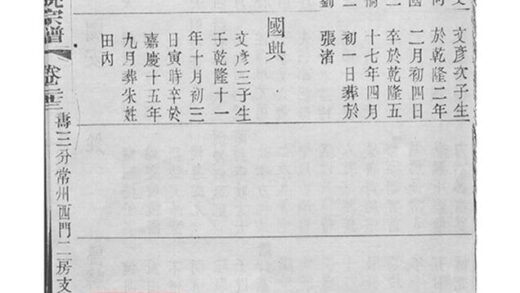 文彥次子生
於乾隆二年
二月初四日
卒於乾隆五
十七年四月
初一日葬於
張渚
國興
文彥三子生
于乾隆十一
年十月初三
日寅時卒於
嘉慶十五年
九月葬朱姓
田內
宗譜
卷
壽三分常州西門二房支